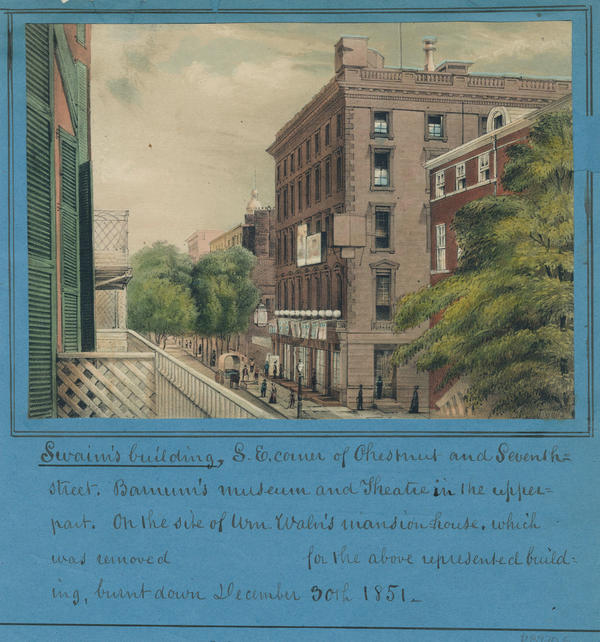 Swain's building, S. E. corner of Chestnut and Seventh=
street. Barnum's museum and Theatre in the upper=
part. On the site of Wm Waln's mansion house, which
was removed for the above represented build=
ing, burnt down December 30th 1851.